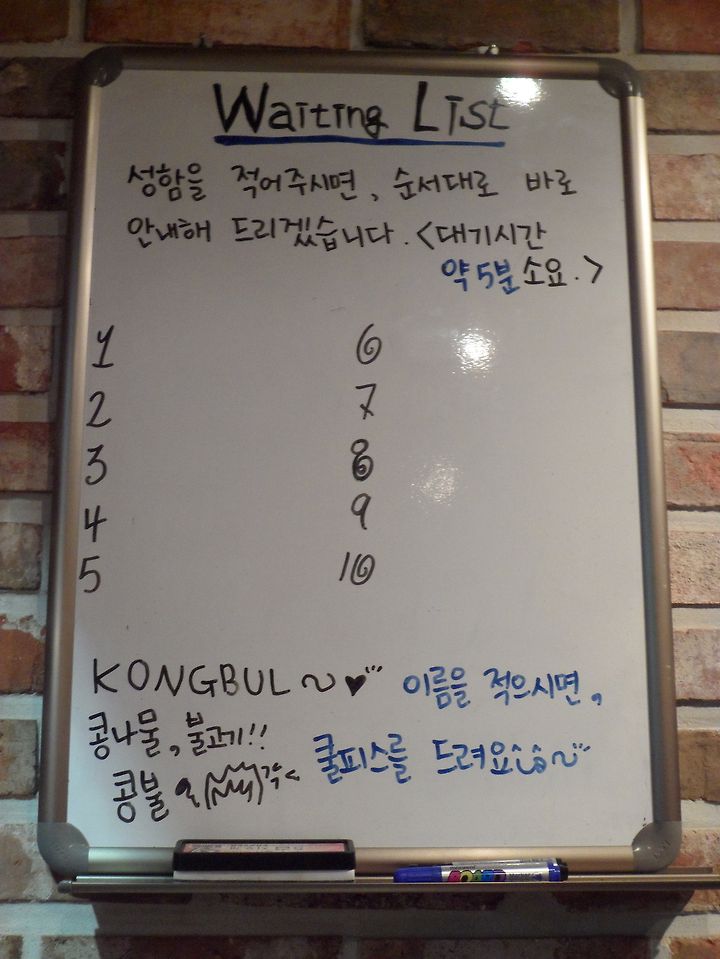 Waiting List
성함을 적어주시면, 순서대로 바로
안내해 드리겠습니다. <대기시간
약 5분 소요.>
1
2
3
4
5
6
7
8
9
10
KONGBUL~♥
콩나물, 불고기!!
콩불
이름을 적으시면,
쿨피스를 드려요
BOARD